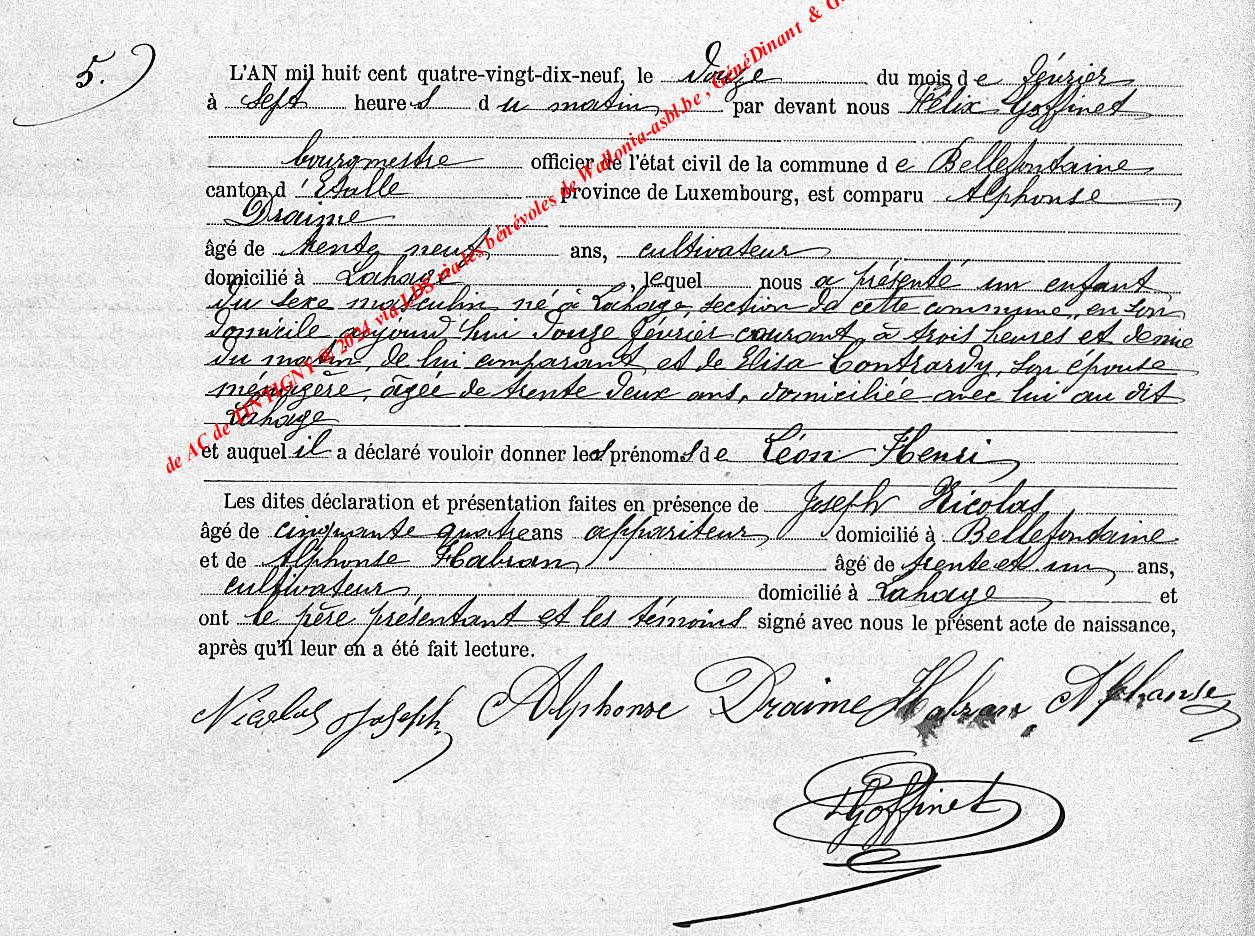 5.
L'AN mil huit cent quatre-vingt-dix-neuf, le Douze du mois de février
à sept heures du matin par devant nous Félix Goffinet
bourgmestre officier de l'état civil de la commune de Bellefontaine
canton d'Etalle province de Luxembourg, est comparu Alphonse
Draime
âgé de trente neuf ans, cultivateur
domicilié à Lahage lequel nous a présenté un enfant
du sexe masculin né à Lahage, section de cette commune, en son
domicile aujourd'hui douze février courant à trois heures et demie
du matin, de lui comparant et de Elisa Contrardy, son épouse
ménagère, âgée de trente deux ans, domiciliée avec lui au dit
Lahage
et auquel il a déclaré vouloir donner les prénoms de Léon Henri
Les dites déclaration et présentation faites en présence de Joseph Nicolas
âgé de cinquante quatre ans appariteur domicilié à Bellefontaine
et de Alphonse Habran âgé de trente et un ans,
cultivateur domicilié à Lahage et
ont le père présentant et les témoins signé avec nous le présent acte de naissance,
après qu'il leur en a été fait lecture.
Nicolas Joseph Alphonse Draime Habran Alphonse
Goffinet
de AC de TINTIGNY @ 2024 via LDS via les bénévoles de Wallonia-asbl.be, GénéDinant & G